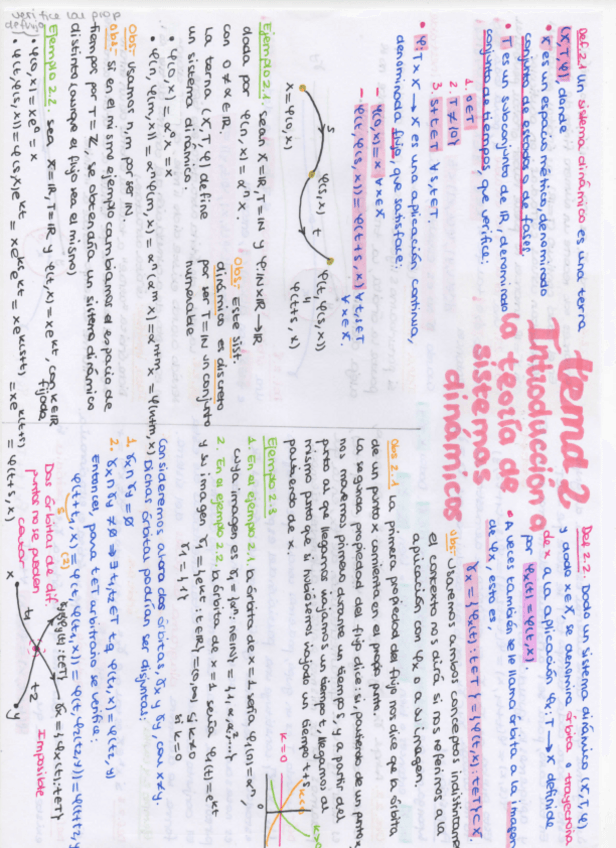 tema 2
Introducción a
la teoría de
sistemas
dinámicos
Def. 2.1 Un sistema dinámico es una terna
(X,T,φ), donde
• X es un espacio métrico, denominado
conjunto de estados o de fases
• T es un subconjunto de IR, denominado
conjunto de tiempos, que verifica:
1. 0∈T
2. T≠{0}
3. s+t∈T ∀s,t∈T.
• φ: T×X → X es una aplicación continua,
denominada flujo, que satisface:
- φ(0,x)=x ∀x∈X
- φ(t,φ(s,x))=φ(t+s,x) ∀t,s∈T
∀x∈X.
s
t
x=φ(0,x)
φ(s,x)
φ(t,φ(s,x))
φ(t+s,x)
Ejemplo 2.1. sean X=IR, T=IN y φ:IN×IR→IR
dada por φ(n,x)=αⁿx.
con 0≠α∈IR.
La terna (X,T,φ) define
un sistema dinámico.
Obs: Este sist.
dinámico es discreto
por ser T=IN un conjunto
numerable
• φ(0,x)=α⁰x=x
• φ(n,φ(m,x))=αⁿφ(m,x)=αⁿ(αᵐx)=αⁿ⁺ᵐx=φ(n+m,x)
Obs: usamos n,m por ser IN
Obs: si en el mismo ejemplo cambiamos el espacio de
tiempos por T=ℤ, se obtendría un sistema dinámico
distinto (aunque el flujo sea el mismo)
Ejemplo 2.2. sea X=IR, T=IR y φ(t,x)=xeᵏᵗ, con k∈IR
fijado
verifica las prop
de flujo
• φ(0,x)=xe⁰=x
• φ(t,φ(s,x))=φ(s,x)eᵏᵗ=xeᵏˢeᵏᵗ=xeᵏˢ⁺ᵏᵗ=xeᵏ⁽ˢ⁺ᵗ⁾=φ(t+s,x)
Def 2.2. Dado un sistema dinámico (X,T,φ)
y dado x∈X, se denomina órbita o trayectoria
de x a la aplicación φx:T→X definida
por φx(t)=φ(t,x).
• A veces también se le llama órbita a la imagen
de φx, esto es,
γx={φx(t):t∈T}={φ(t,x):t∈T}⊂X.
Obs: usaremos ambos conceptos indistintamente
el contexto nos dirá si nos referimos a la
aplicación con φx o a su imagen.
Obs 2.1 La primera propiedad del flujo nos dice que la órbita
de un punto x comienza en el propio punto.
La segunda propiedad del flujo dice: si, partiendo de un punto x
nos movemos primero durante un tiempo s, y a partir del
punto al que llegamos viajamos un tiempo t, llegamos al
mismo punto que si hubiésemos viajado un tiempo t+s
partiendo de x.
Ejemplo 2.3
1. En el ejemplo 2.1, la órbita de x=1 sería φ₁(n)=αⁿ,
cuya imagen es γ₁={αⁿ:n∈IN}={1,α,α²,...}
2. En el ejemplo 2.2, la órbita de x=1 sería φ₁(t)=eᵏᵗ
y su imagen γ₁={eᵏᵗ:t∈IR}=(0,∞) si k≠0
γ₁={1} si k=0
k=0
k<0
k>0
Consideremos ahora dos órbitas, γx y γy con x≠y.
Dichas órbitas podrían ser disjuntas:
1. γx∩γy=∅
2. γx∩γy≠∅ ⇒ ∃t₁,t₂∈T tq φ(t₁,x)=φ(t₂,y)
Entonces, para t∈T arbitrario se verifica:
φ(t+t₁,x)=φ(t,φ(t₁,x))=φ(t,φ(t₂,y))=φ(t+t₂,y)
(2)
Dos órbitas de dif.
puntos no se pueden
cruzar
x
t1
t2
y
γx={φx(t):t∈T}
Imposible